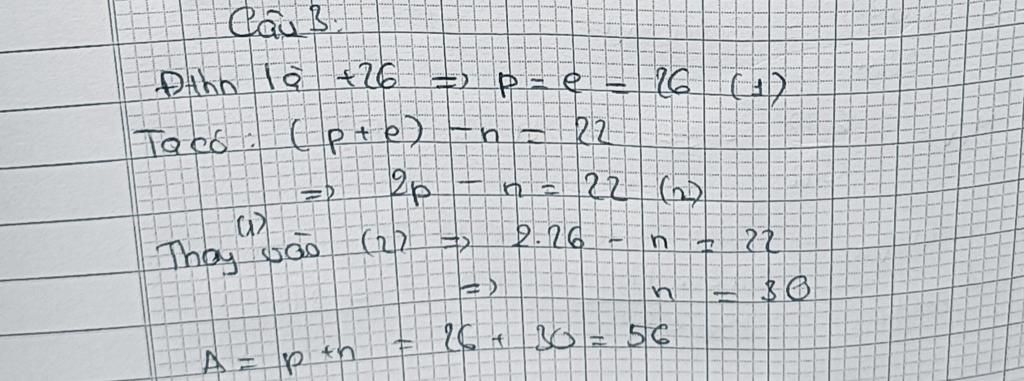 Câu 3.
Đthn là +26 => p = e = 26 (1)
Ta có: (p+e) - n = 22
=> 2p - n = 22 (2)
Thay (1) vào (2) => 2.26 - n = 22
=> n = 30
A = p+n = 26 + 30 = 56